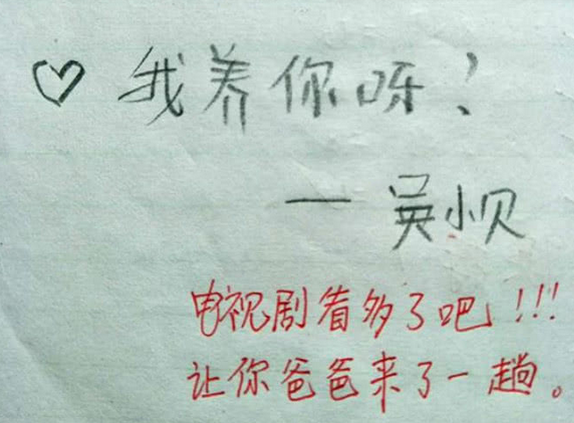 ♡ 我养你呀！
— 吴小贝
电视剧看多了吧!!!
让你爸爸来了一趟。